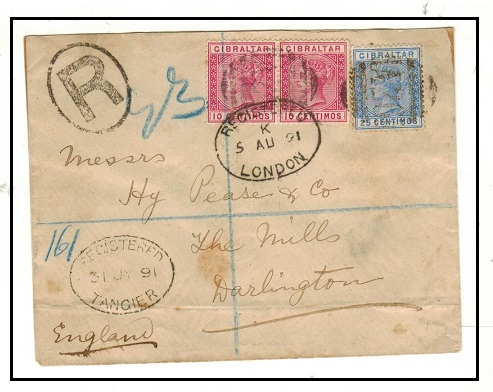 GIBRALTAR GIBRALTAR GIBRALTAR
10 CENTIMOS 10 CENTIMOS 25 CENTIMOS
R
REGISTERED
K
5 AU 91
LONDON
Messrs
Hy Pease & Co
The Mills
Darlington
England
161
REGISTERED
31 JY 91
TANGIER